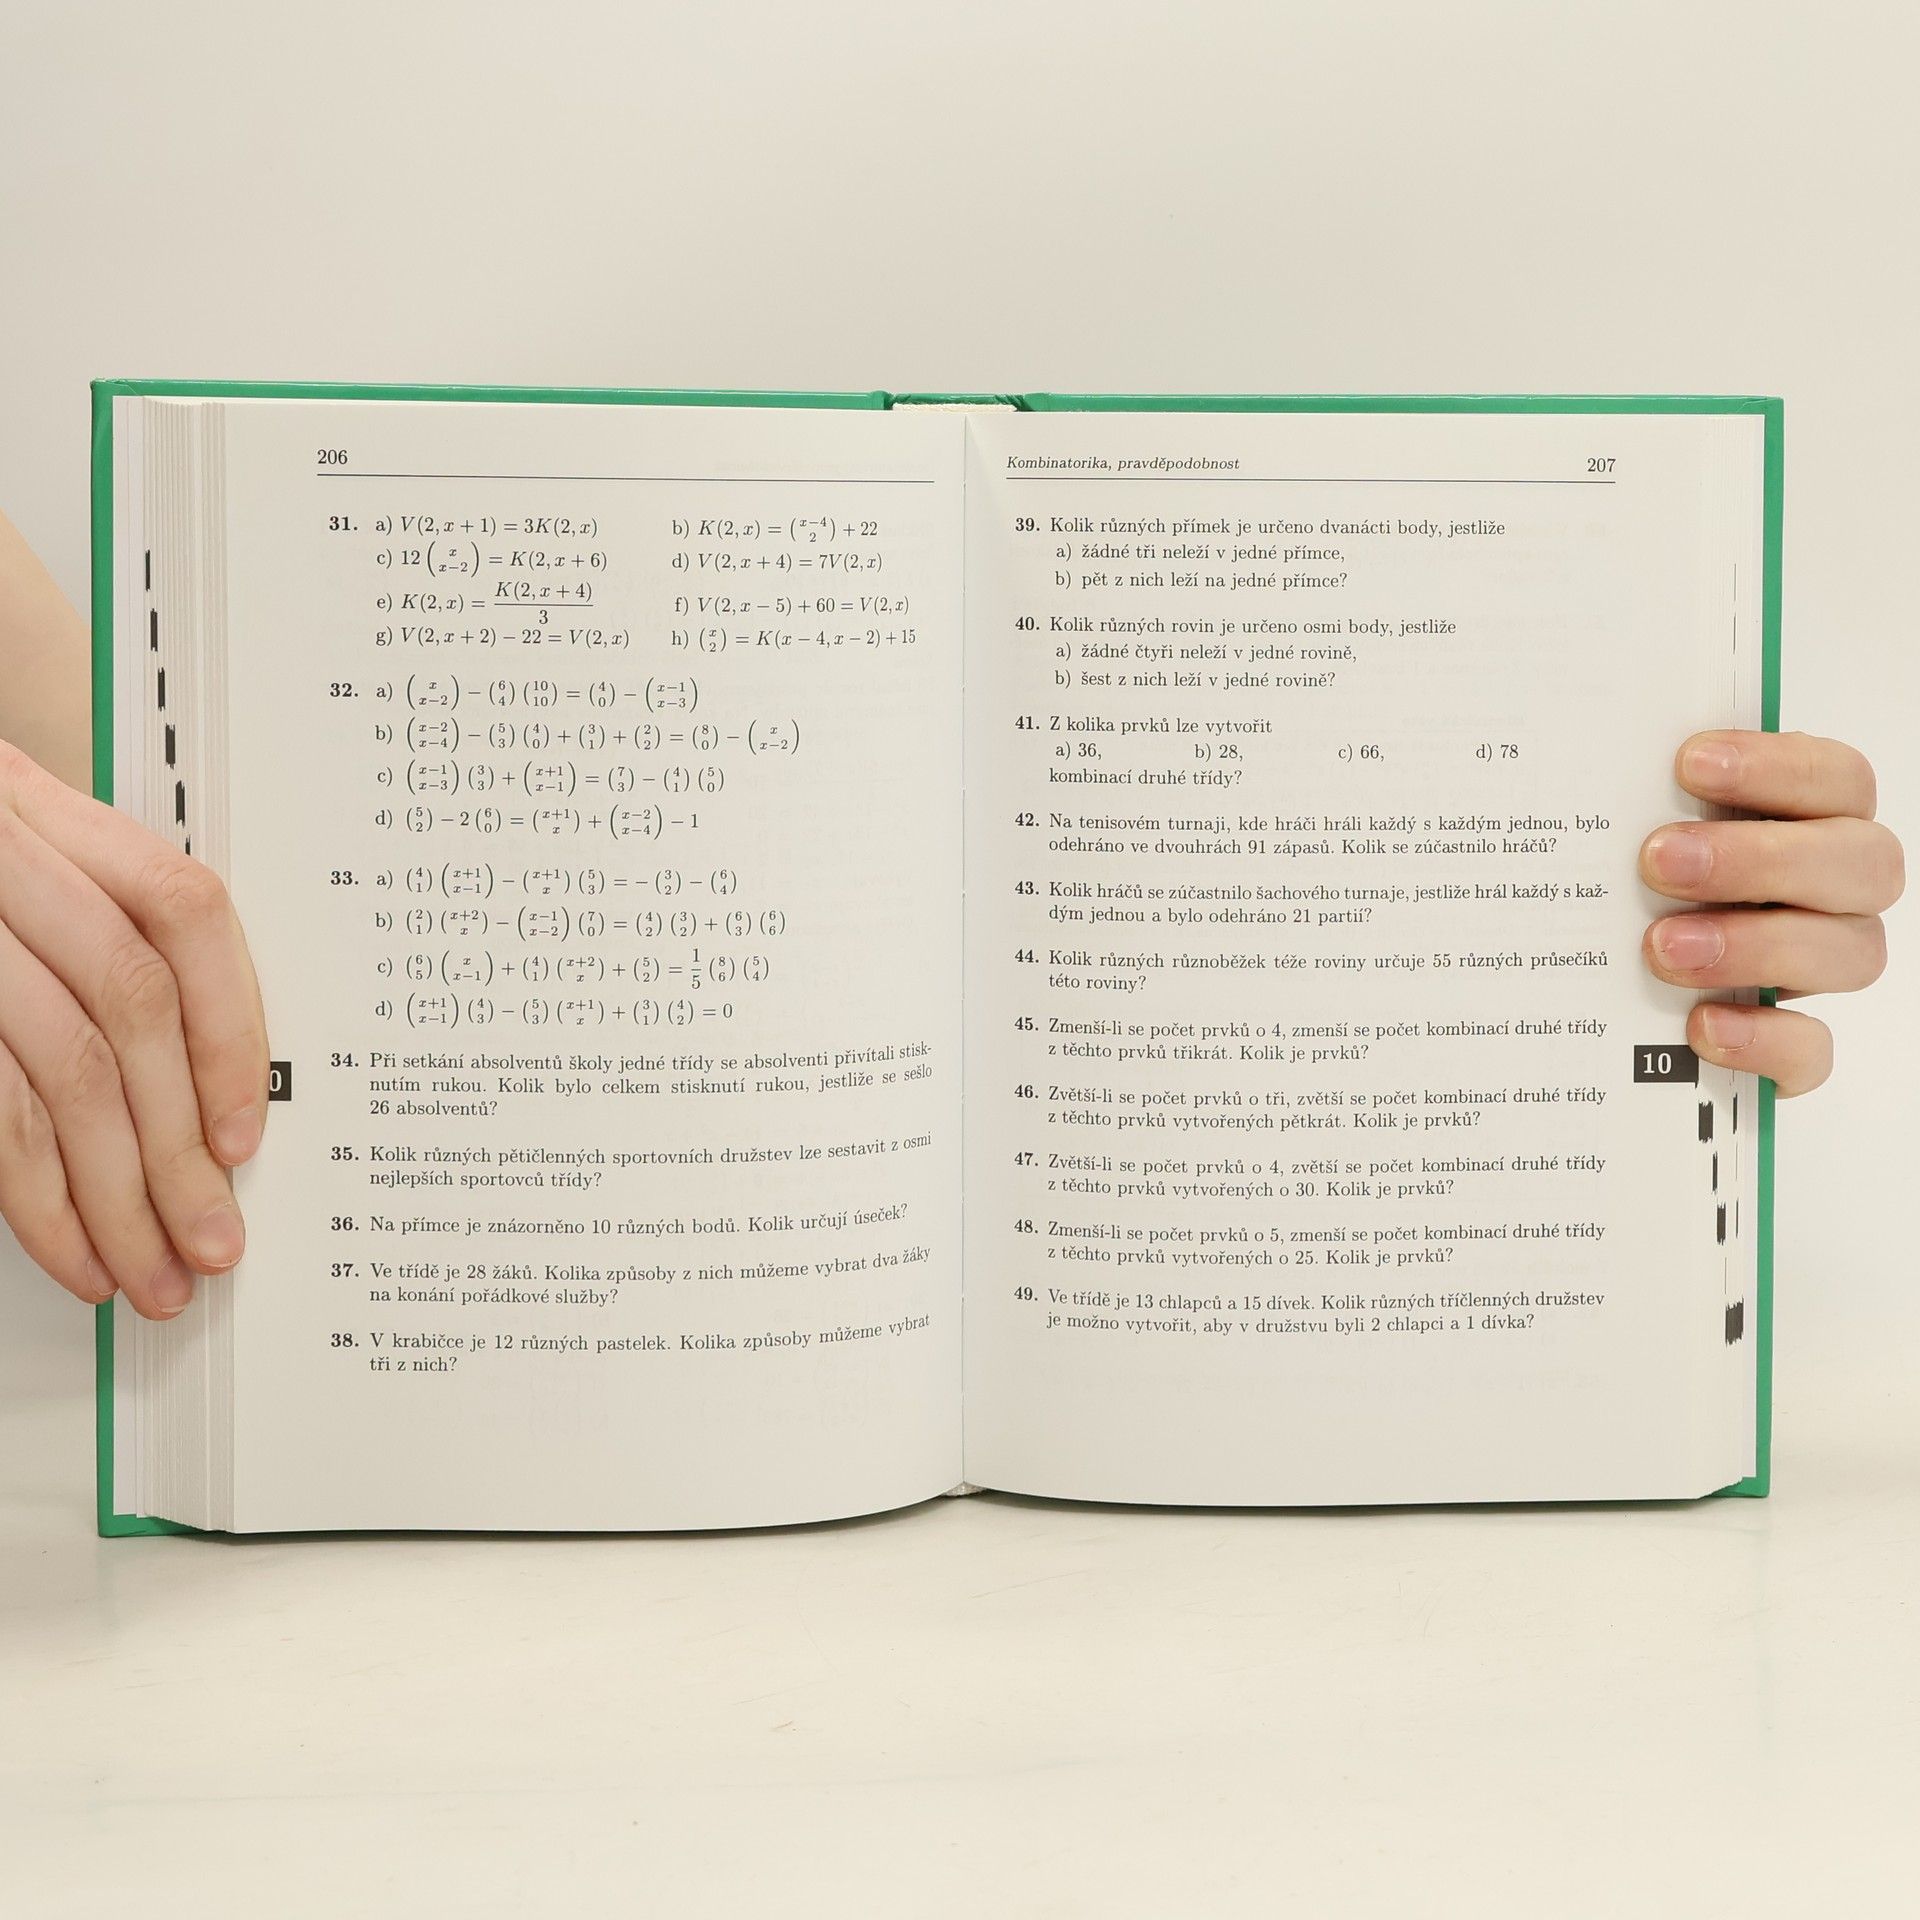 206
31. a) V(2, x + 1) = 3K(2, x) b) K(2, x) = \binom{x-4}{2} + 22
c) 12 \binom{x}{x-2} = K(2, x + 6) d) V(2, x + 4) = 7V(2, x)
e) K(2, x) = \frac{K(2, x + 4)}{3} f) V(2, x − 5) + 60 = V(2, x)
g) V(2, x + 2) − 22 = V(2, x) h) \binom{x}{2} = K(x − 4, x − 2) + 15
32. a) \binom{x}{x-2} − \binom{6}{4} \binom{10}{10} = \binom{4}{0} − \binom{x-1}{x-3}
b) \binom{x-2}{x-4} − \binom{5}{3} \binom{4}{0} + \binom{3}{1} + \binom{2}{2} = \binom{8}{0} − \binom{x}{x-2}
c) \binom{x-1}{x-3} \binom{3}{3} + \binom{x+1}{x-1} = \binom{7}{3} − \binom{4}{1} \binom{5}{0}
d) \binom{5}{2} − 2 \binom{6}{0} = \binom{x+1}{x} + \binom{x-2}{x-4} − 1
33. a) \binom{4}{1} \binom{x+1}{x-1} − \binom{x+1}{x} \binom{5}{3} = − \binom{3}{2} − \binom{6}{4}
b) \binom{2}{1} \binom{x+2}{x} − \binom{x-1}{x-2} \binom{7}{0} = \binom{4}{2} \binom{3}{2} + \binom{6}{3} \binom{6}{6}
c) \binom{6}{5} \binom{x}{x-1} + \binom{4}{1} \binom{x+2}{x} + \binom{5}{2} = \frac{1}{5} \binom{8}{6} \binom{5}{4}
d) \binom{x+1}{x-1} \binom{4}{3} − \binom{5}{3} \binom{x+1}{x} + \binom{3}{1} \binom{4}{2} = 0
34. Při setkání absolventů školy jedné třídy se absolventi přivítali stisk-
nutím rukou. Kolik bylo celkem stisknutí rukou, jestliže se sešlo
26 absolventů?
35. Kolik různých pětičlenných sportovních družstev lze sestavit z osmi
nejlepších sportovců třídy?
36. Na přímce je znázorněno 10 různých bodů. Kolik určují úseček?
37. Ve třídě je 28 žáků. Kolika způsoby z nich můžeme vybrat dva žáky
na konání pořádkové služby?
38. V krabičce je 12 různých pastelek. Kolika způsoby můžeme vybrat
tři z nich?
0
Kombinatorika, pravděpodobnost 207
39. Kolik různých přímek je určeno dvanácti body, jestliže
a) žádné tři neleží v jedné přímce,
b) pět z nich leží na jedné přímce?
40. Kolik různých rovin je určeno osmi body, jestliže
a) žádné čtyři neleží v jedné rovině,
b) šest z nich leží v jedné rovině?
41. Z kolika prvků lze vytvořit
a) 36, b) 28, c) 66, d) 78
kombinací druhé třídy?
42. Na tenisovém turnaji, kde hráči hráli každý s každým jednou, bylo
odehráno ve dvouhrách 91 zápasů. Kolik se zúčastnilo hráčů?
43. Kolik hráčů se zúčastnilo šachového turnaje, jestliže hrál každý s kaž-
dým jednou a bylo odehráno 21 partií?
44. Kolik různých různoběžek téže roviny určuje 55 různých průsečíků
této roviny?
45. Zmenší-li se počet prvků o 4, zmenší se počet kombinací druhé třídy
z těchto prvků třikrát. Kolik je prvků?
46. Zvětší-li se počet prvků o tři, zvětší se počet kombinací druhé třídy
z těchto prvků vytvořených pětkrát. Kolik je prvků?
47. Zvětší-li se počet prvků o 4, zvětší se počet kombinací druhé třídy
z těchto prvků vytvořených o 30. Kolik je prvků?
48. Zmenší-li se počet prvků o 5, zmenší se počet kombinací druhé třídy
z těchto prvků vytvořených o 25. Kolik je prvků?
49. Ve třídě je 13 chlapců a 15 dívek. Kolik různých tříčlenných družstev
je možno vytvořit, aby v družstvu byli 2 chlapci a 1 dívka?
10